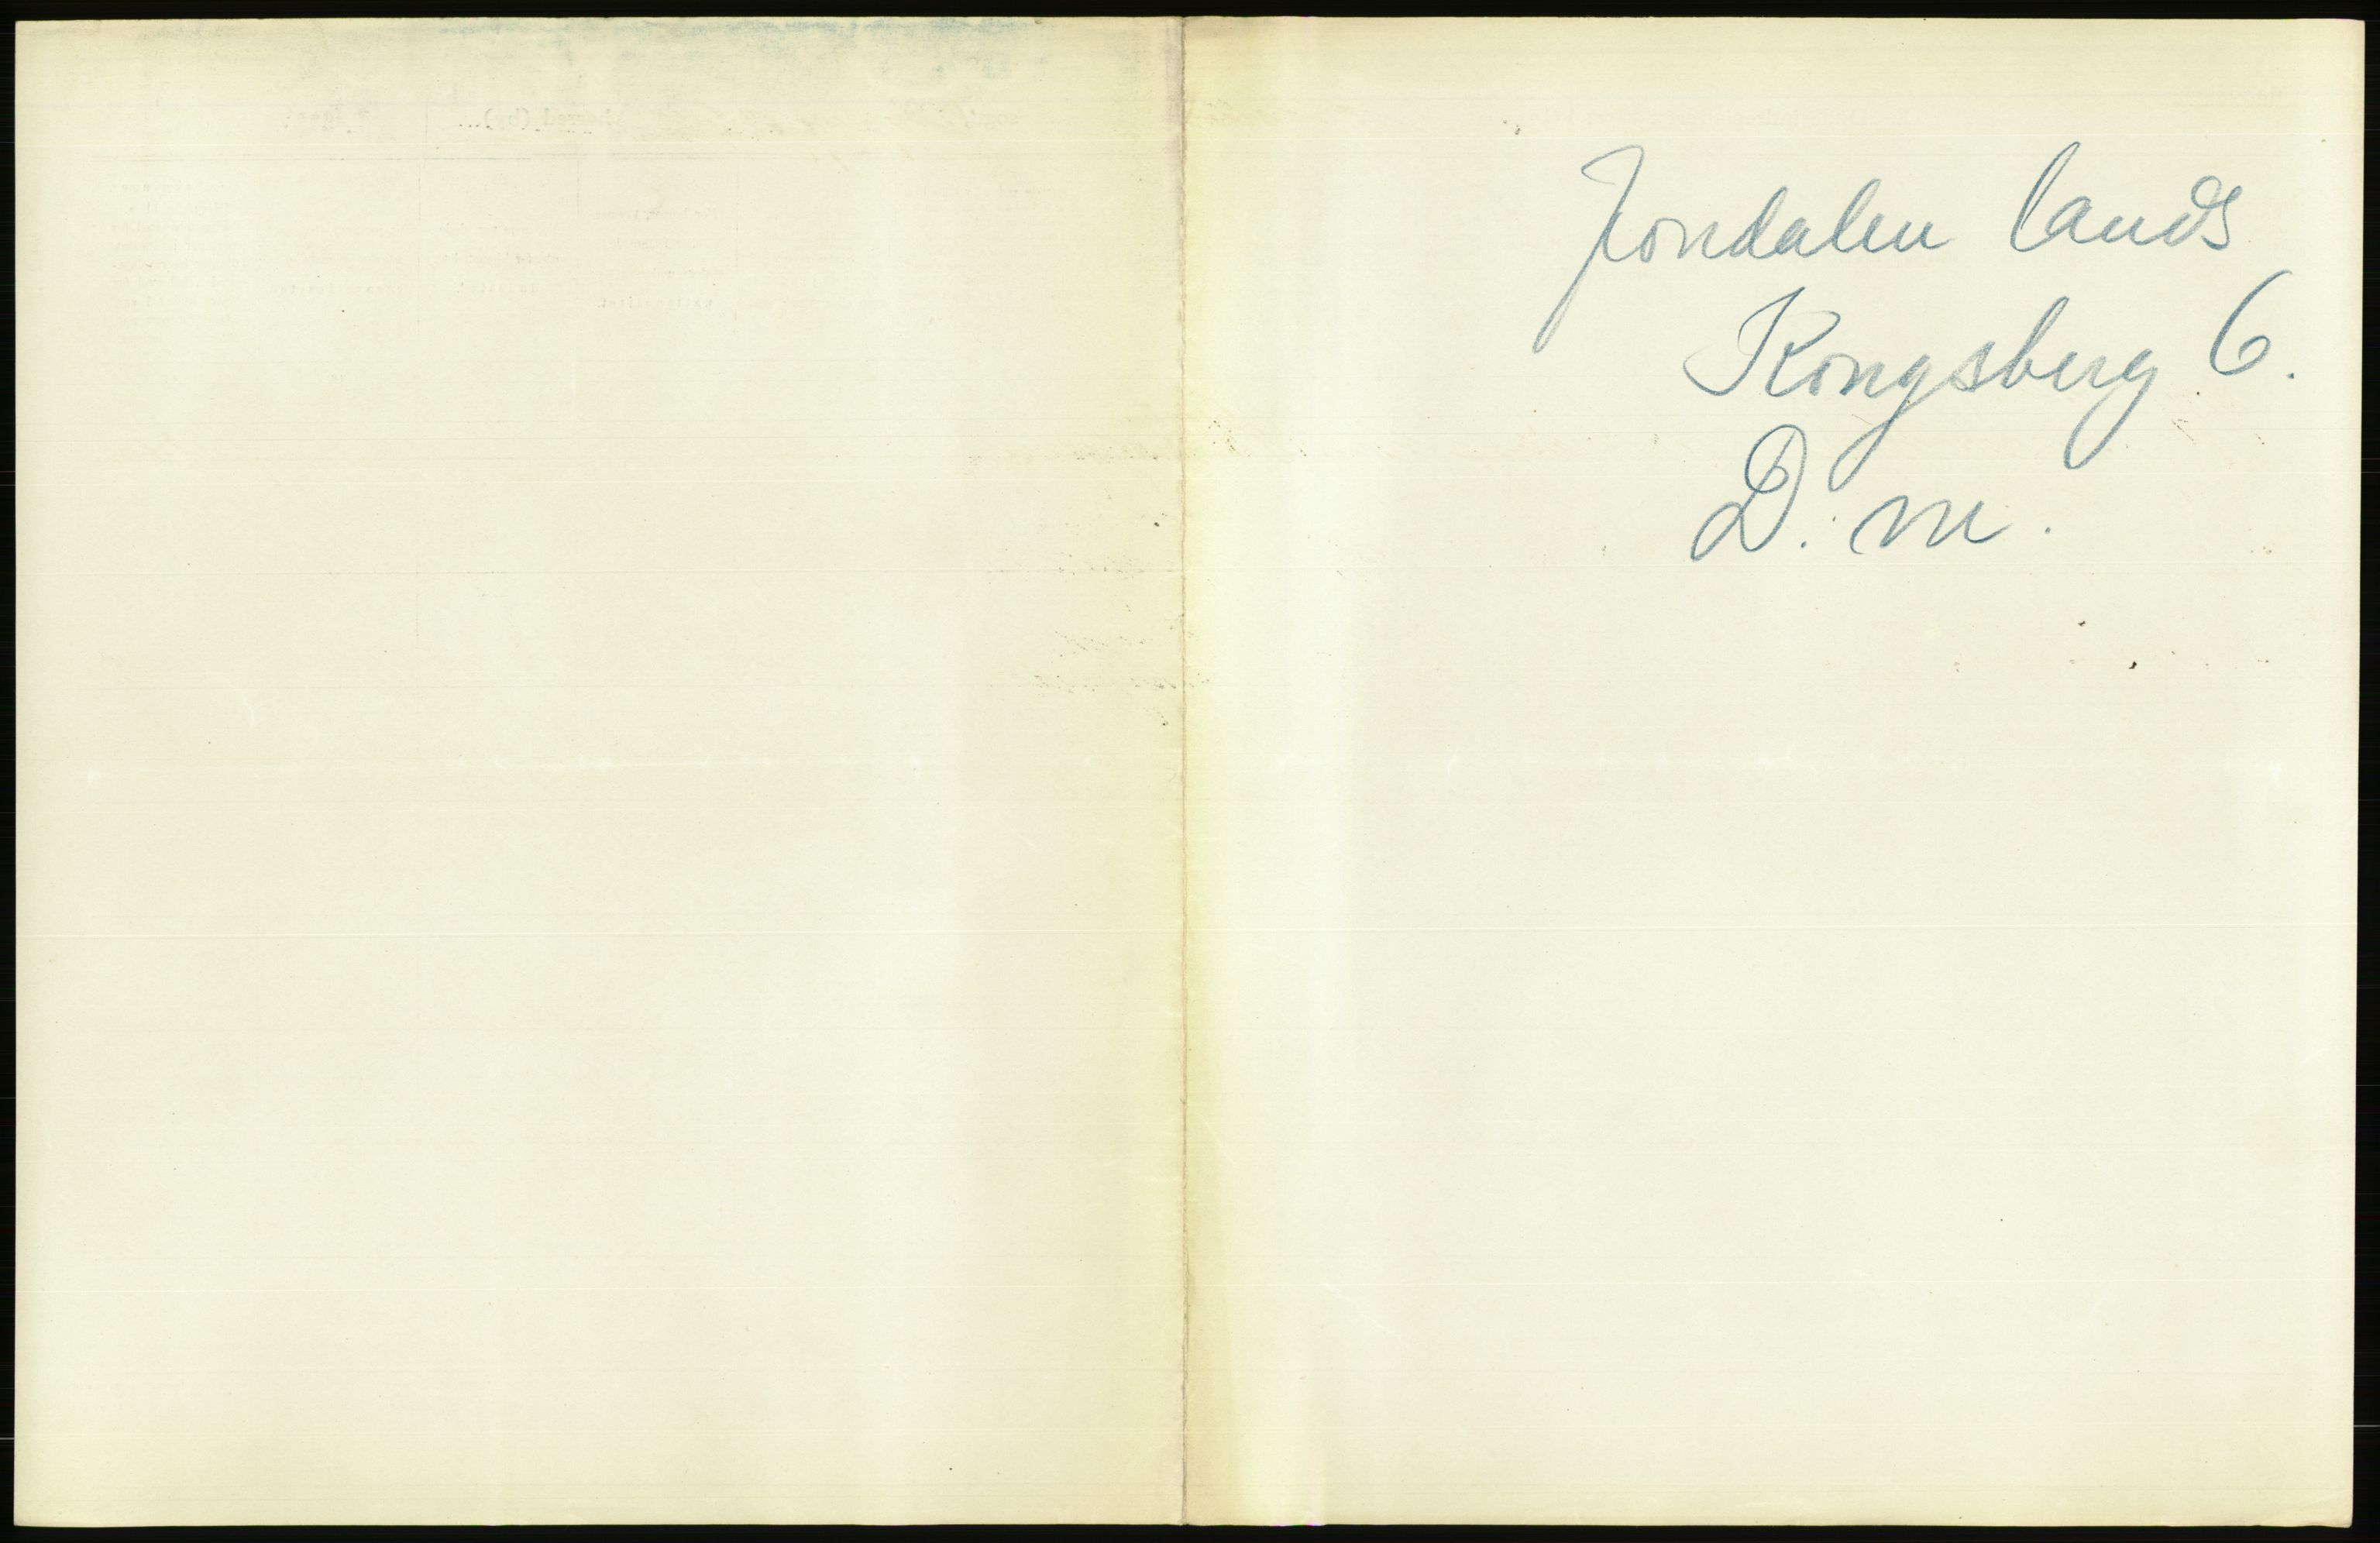 Jondalen lands
Kongsberg 6.
D. m.